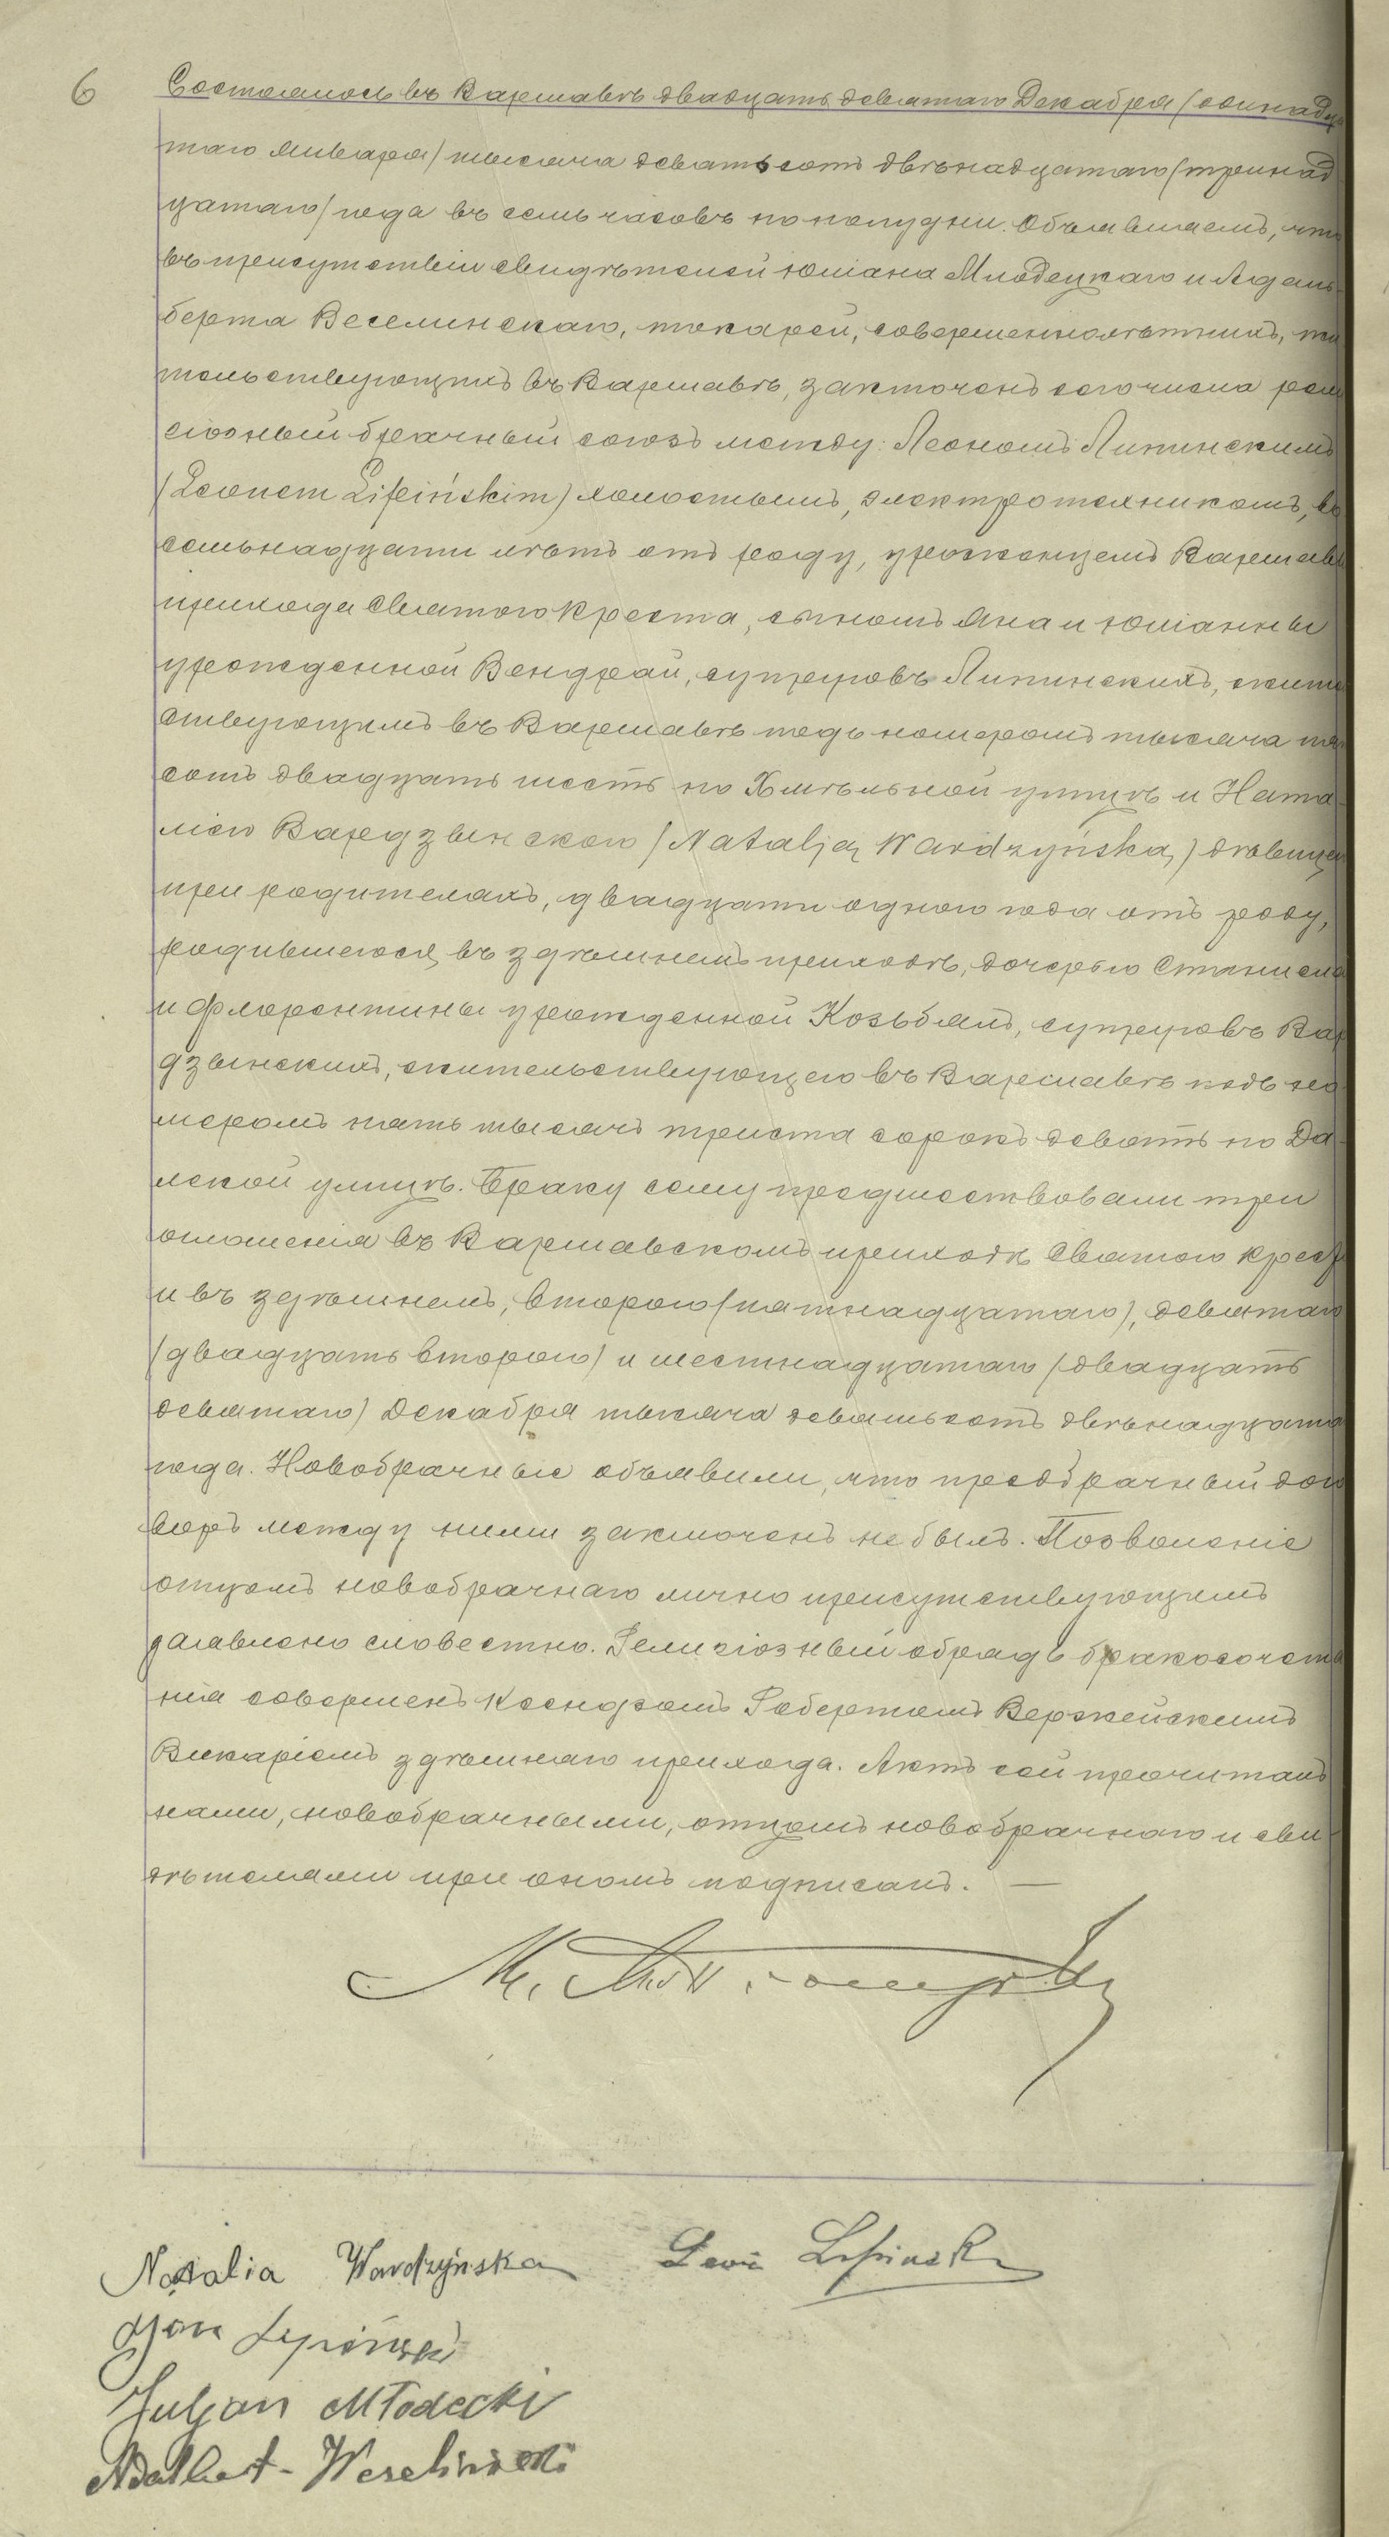 6
Состоялось въ Варшавѣ двадцать девятаго Декабря (одиннадца
таго Января) тысяча девятьсотъ двѣнадцатаго (тринад
цатаго) года въ семь часовъ по полудни. Объявляемъ, что
въ присутствіи свидѣтелей Юліана Млодецкаго и Адаль-
берта Веселинскаго, токарей, совершеннолѣтнихъ, жи
тельствующихъ въ Варшавѣ, заключенъ сего числа рели
гіозный брачный союзъ между: Леономъ Липинскимъ
(Leonem Lipińskim) холостымъ, электротехникомъ, во
семьнадцати лѣтъ отъ роду, уроженцемъ Варшавы
прихода Святого Креста, сыномъ Яна и Юліанны
урожденной Вендрай, супруговъ Липинскихъ, жител
ствующимъ въ Варшавѣ подъ номеромъ тысяча пять
сотъ двадцать шесть по Хмѣльной улицѣ и Ната-
ліею Вардзынскою (Natalją Wardzyńską) дѣвицею
при родителяхъ, двадцати одного года отъ роду,
родившеюся въ здѣшнемъ приходѣ, дочерью Станислава
и Флорентины урожденной Козьбялъ, супруговъ Вар
дзынскихъ, жительствующею въ Варшавѣ подъ но-
меромъ пять тысячъ триста сорокъ девять по Да-
лекой улицѣ. Браку сему предшествовали три
оглашенія въ Варшавскомъ приходѣ Святого Креста
и въ здѣшнемъ, второго (пятнадцатаго), девятаго
(двадцать второго) и шестнадцатаго (двадцать
девятаго) Декабря тысяча девятьсотъ двѣнадцатаго
года. Новобрачные объявили, что предбрачный дого
воръ между ними заключенъ не былъ. Позволеніе
отцомъ новобрачнаго лично присутствующимъ
заявлено словестно. Религіозный обрядъ бракосочета
нія совершенъ Ксендзомъ Робертомъ Вержейскимъ
Викаріемъ здѣшняго прихода. Актъ сей прочитанъ
нами, новобрачными, отцомъ новобрачнаго и сви-
дѣтелями при ономъ подписанъ. —
Natalia Wardzyńska Leon Lipiński
Jan Lipiński
Juljan Młodecki
Adalbert - Weseliński